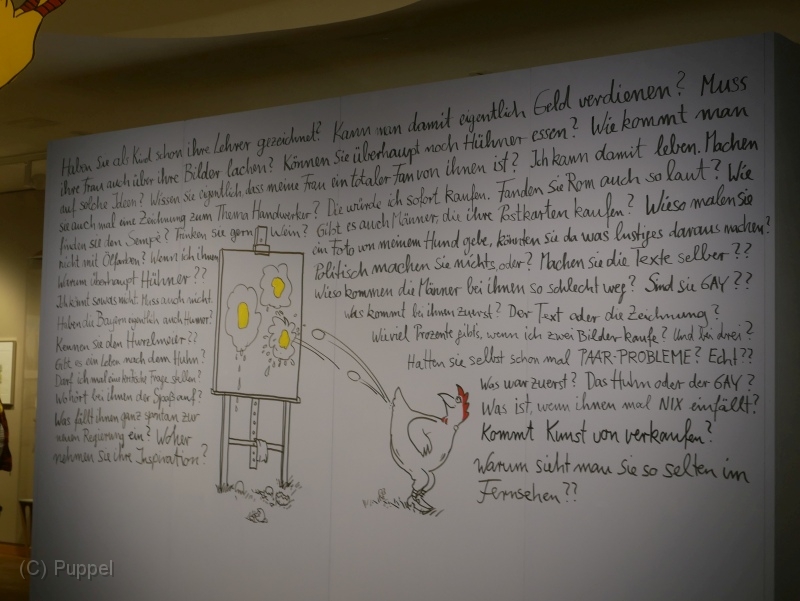 Haben Sie als Kind schon ihre Lehrer gezeichnet? Kann man damit eigentlich Geld verdienen? Muss
ihre Frau auch über ihre Bilder lachen? Können Sie überhaupt noch Hühner essen? Wie kommt man
auf solche Ideen? Wissen Sie eigentlich, dass meine Frau ein totaler Fan von ihnen ist? Ich kann damit leben. Machen
sie auch mal eine Zeichnung zum Thema Handwerker? Die würde ich sofort kaufen. Fanden sie Rom auch so laut? Wie
finden sie den Sempé? Trinken sie gern Wein? Gibt es auch Männer, die ihre Postkarten kaufen? Wieso malen sie
nicht mit Ölfarben? Wenn ich ihnen ein Foto von meinem Hund gebe, könnten Sie da was lustiges daraus machen?
Warum überhaupt Hühner?? Politisch machen Sie nichts, oder? Machen sie die Texte selber??
Ich könnt sowas nicht. Muss auch nicht. Wieso kommen die Männer bei ihnen so schlecht weg? Sind sie GAY??
Haben die Bayern eigentlich auch Humor? Was kommt bei ihnen zuerst? Der Text oder die Zeichnung?
Kennen Sie den Hurzlmeier?? Wieviel Prozente gibt's, wenn ich zwei Bilder kaufe? Und bei drei?
Gibt es ein Leben nach dem Huhn? Hatten sie selbst schon mal PAAR-PROBLEME? Echt??
Darf ich mal eine kritische Frage stellen? Was war zuerst? Das Huhn oder der GAY?
Wo hört bei ihnen der Spaß auf? Was ist, wenn ihnen mal NIX einfällt?
Was fällt ihnen ganz spontan zur Kommt Kunst von verkaufen?
neuen Regierung ein? Woher Warum sieht man Sie so selten im
nehmen sie ihre Inspiration? Fernsehen??
(C) Puppel